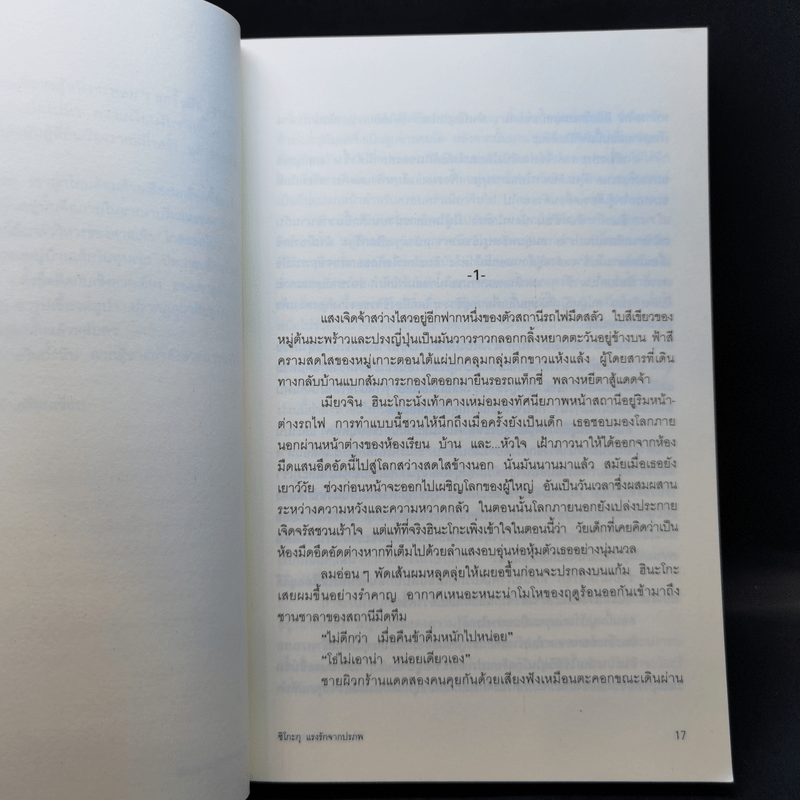 -1-
แสงเจิดจ้าสว่างไสวอยู่อีกฟากหนึ่งของตัวสถานีรถไฟมืดสลัว ใบสีเขียวของ
หมู่ต้นมะพร้าวและปรงญี่ปุ่นเป็นมันวาวราวกลอกกลิ้งหยาดตะวันอยู่ข้างบน ฟ้าสี
ครามสดใสของหมู่เกาะตอนใต้แผ่ปกคลุมกลุ่มตึกขาวแห้งแล้ง ผู้โดยสารที่เดิน
ทางกลับบ้านแบกสัมภาระกองโตออกมายืนรอรถแท็กซี่ พลางหยีตาสู้แดดจ้า
เมียวจิน ฮินะโกะนั่งเท้าคางเหม่อมองทัศนียภาพหน้าสถานีอยู่ริมหน้า-
ต่างรถไฟ การทำแบบนี้ชวนให้นึกถึงเมื่อครั้งยังเป็นเด็ก เธอชอบมองโลกภาย
นอกผ่านหน้าต่างของห้องเรียน บ้าน และ...หัวใจ เฝ้าภาวนาให้ได้ออกจากห้อง
มืดแสนอึดอัดนี้ไปสู่โลกสว่างสดใสข้างนอก นั่นมันนานมาแล้ว สมัยเมื่อเธอยัง
เยาว์วัย ช่วงก่อนหน้าจะออกไปเผชิญโลกของผู้ใหญ่ อันเป็นวันเวลาซึ่งผสมผสาน
ระหว่างความหวังและความหวาดกลัว ในตอนนั้นโลกภายนอกยังเปล่งประกาย
เจิดจรัสชวนเร้าใจ แต่แท้ที่จริงฮินะโกะเพิ่งเข้าใจในตอนนี้ว่า วัยเด็กที่เคยคิดว่าเป็น
ห้องมืดอึดอัดต่างหากที่เต็มไปด้วยลำแสงอบอุ่นห่อหุ้มตัวเธออย่างนุ่มนวล
ลมอ่อนๆ พัดเส้นผมหลุดลุ่ยให้เผยอขึ้นก่อนจะปรกลงบนแก้ม ฮินะโกะ
เสยผมขึ้นอย่างรำคาญ อากาศเหนอะหนะน่าโมโหของฤดูร้อนออกันเข้ามาถึง
ชานชาลาของสถานีมืดทึม
“ไม่ดีกว่า เมื่อคืนข้าดื่มหนักไปหน่อย”
“โธ่ไม่เอาน่า หน่อยเดียวเอง”
ชายผิวกร้านแดดสองคนคุยกันด้วยเสียงฟังเหมือนตะคอกขณะเดินผ่าน
ชิโกะกุ แรงรักจากปรภพ 17